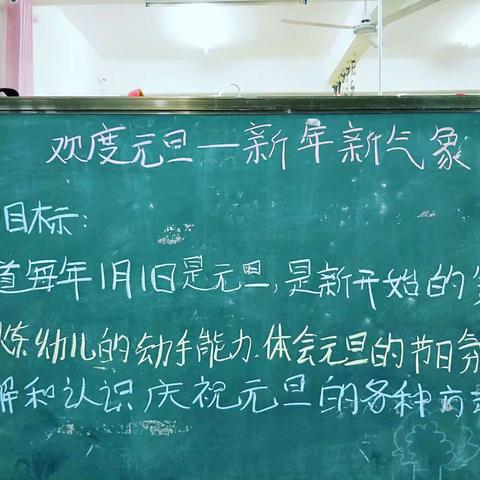 欢度元旦—新年新气象
目标:
道每年1月1日是元旦,是新开始的
炼幼儿的动手能力.体会元旦的节日氛
解和认识庆祝元旦的各种方